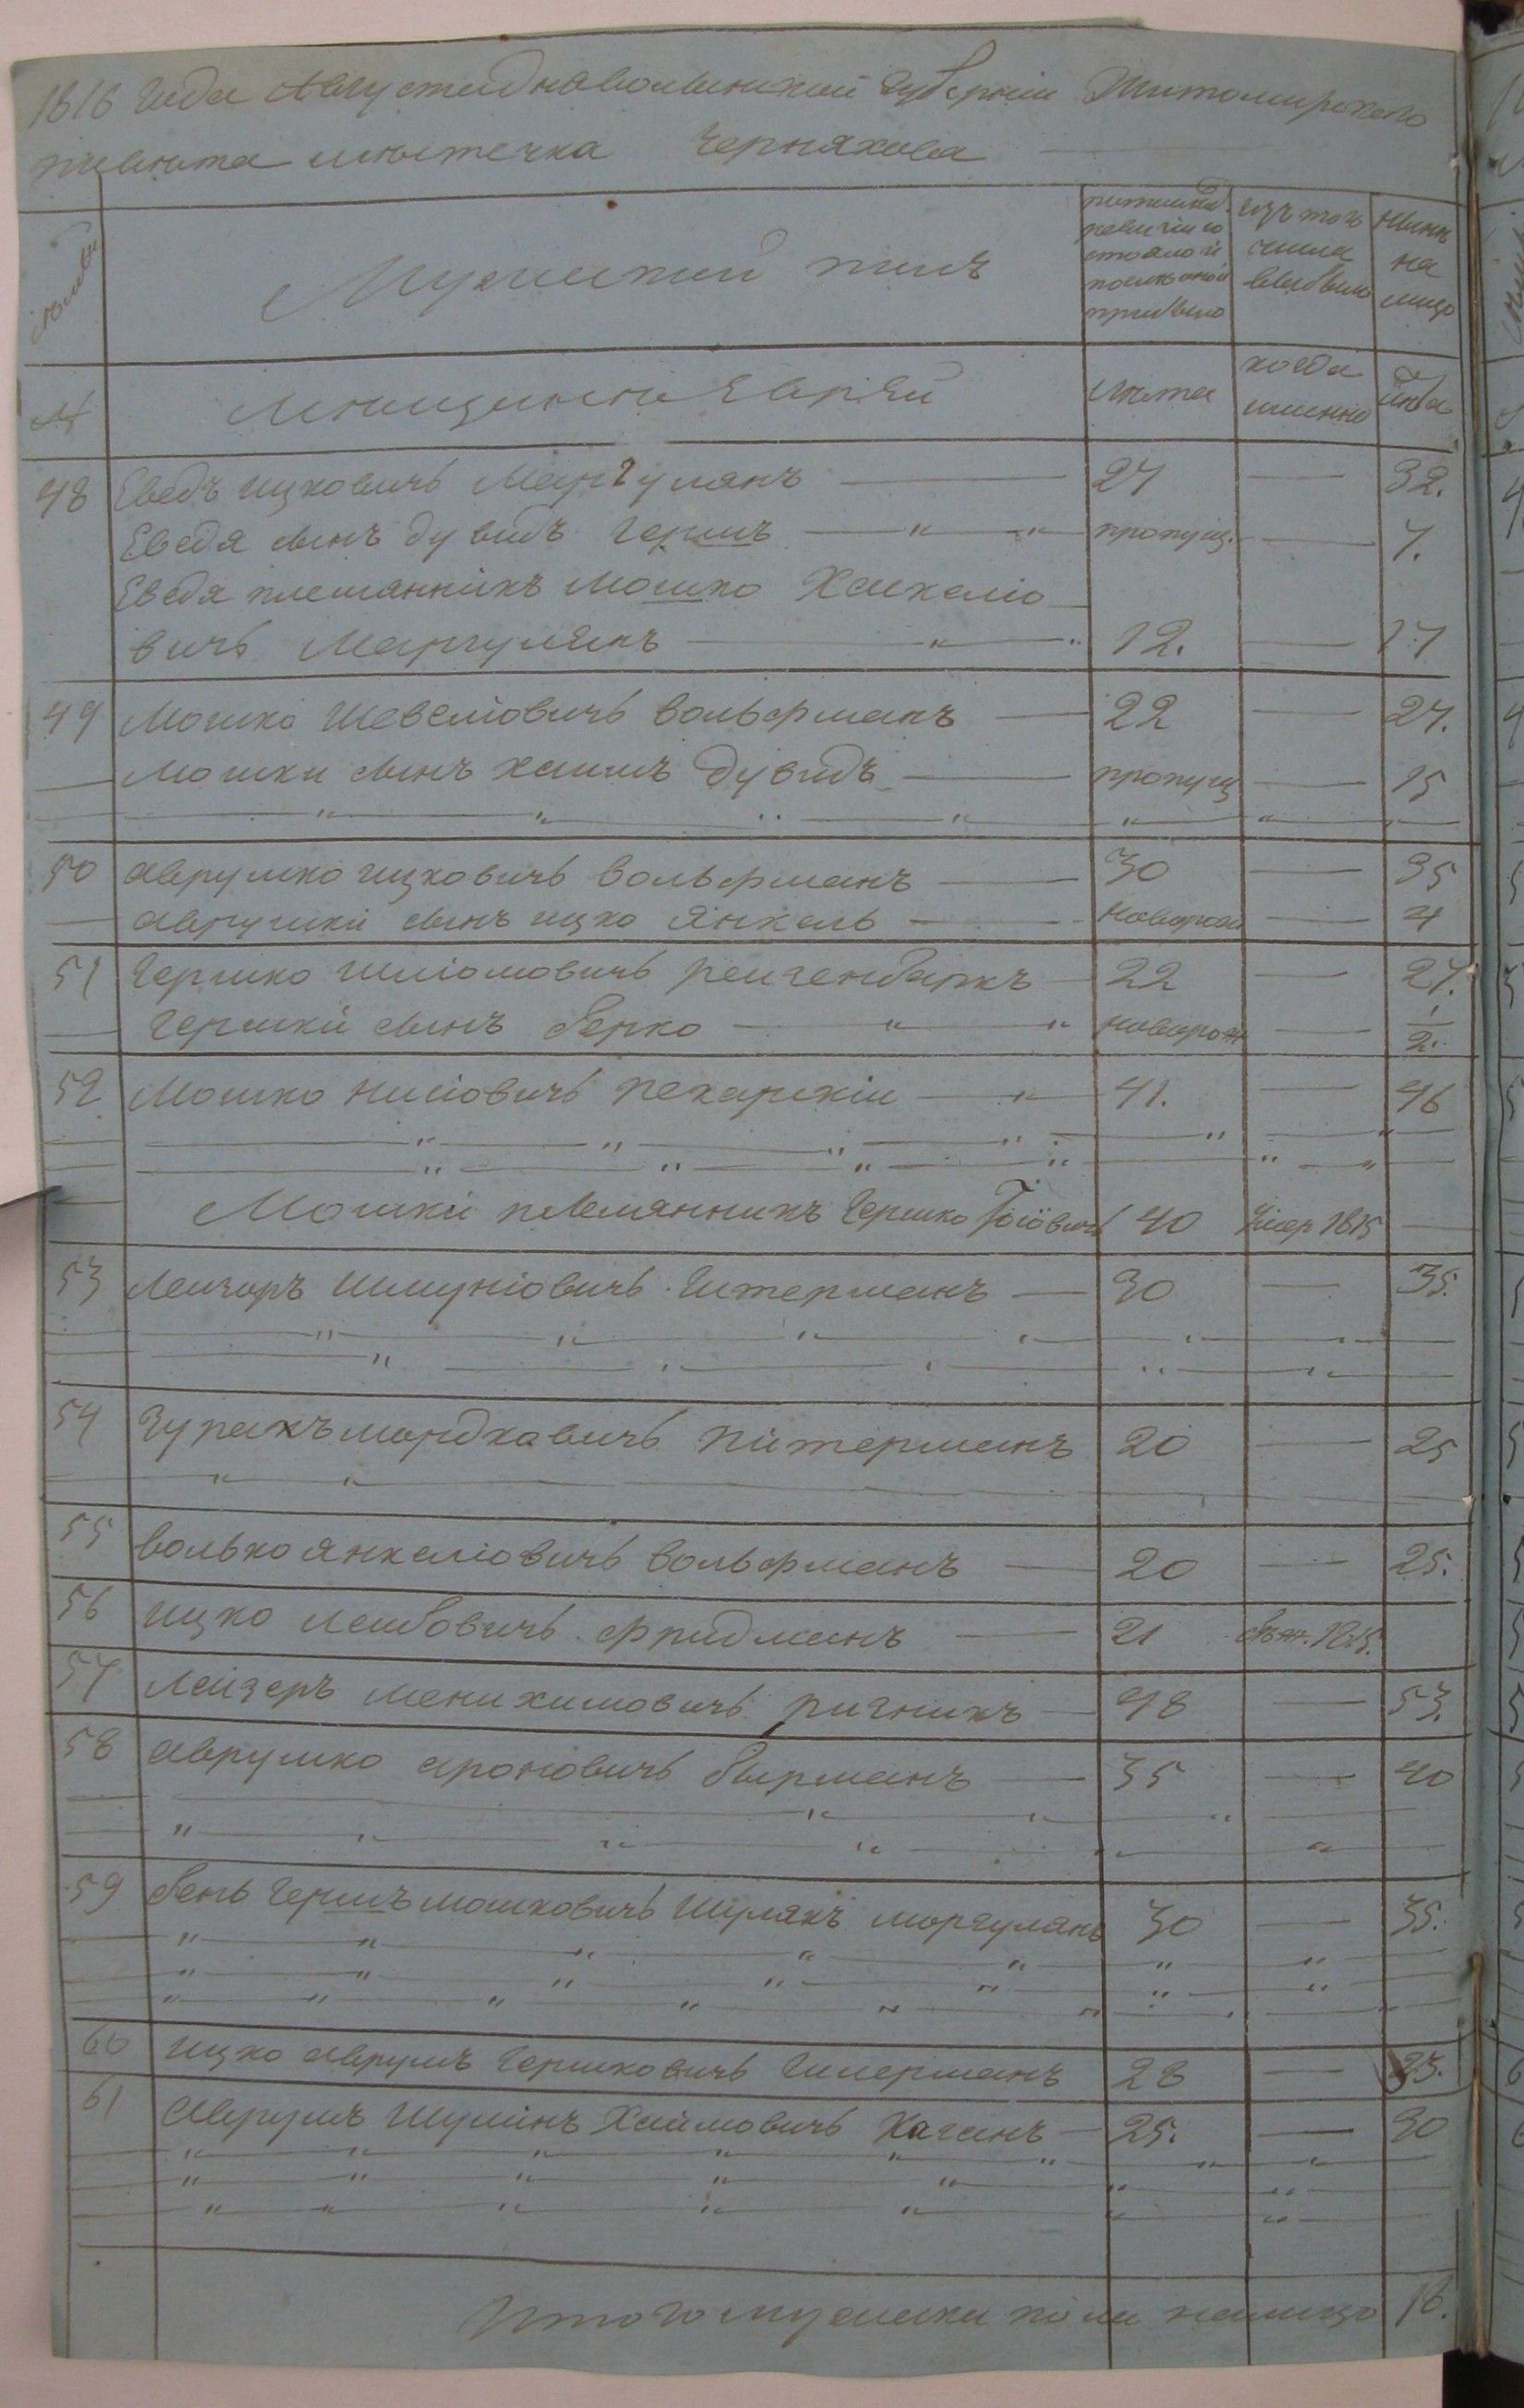 1816 года Августа дня волынской губернии Житомирского
повѣта мѣстечка Черняхова
семьи
Мужеский полъ
по последней
ревизіи со
стояло и
после оной
прибыло
изъ того
числа
выбыло
нынѣ
на
лицо
№
Мещане Евреи
лѣта
когда
именно
лѣта
48 Еведъ ицковичъ Маргулянъ — 27 — 32.
Еведя сынъ дувидъ гершъ — " — " пропущ. — 7.
Еведя племянникъ Мошко Хаскеліо
вичъ Маргулянъ — " — " 12. — 17
49 Мошко Шевеліовичъ вольфманъ — 22 — 27.
Мошки сынъ хаимъ дувидъ — пропущ — 15
50 аврумко ицковичъ вольфманъ — 30 — 35
аврумки сынъ ицко янкель — новорож — 4
51 Гершко шліомовичъ рейгенбаркъ — 22 — 27.
Гершки сынъ берко — " — " новорож — 1/2.
52 Мошко нисіовичъ пекарскіи — " — 41. — 46
Мошки племянникъ гершко Іосіовичъ 40 умер 1815 —
53 Лейзоръ Шмуніовичъ Гитерманъ — 30 — 35.
54 Зурахъ мордковичъ питерманъ 20 — 25
55 волько янкеліовичъ вольфманъ — 20 — 25.
56 ицко лейбовичъ фридманъ — 21 1815.
57 лейзеръ менихимовичъ ричникъ — 48 — 53.
58 аврумко ароновичъ бырманъ — 35 — 40
59 бень гершъ мошковичъ Шулякъ моргулянъ 30 — 35.
60 ицко аврумъ гершковичъ Гилерманъ 28 — 33.
61 Аврумъ Шулимъ Хаймовичъ Каганъ — 25. — 30
Итого мужеска пола налицо 18.